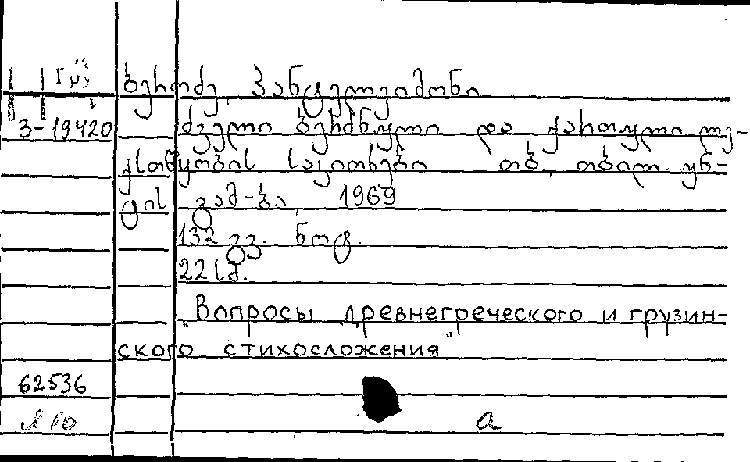 ბერაძე პანტელეიმონი
3-19420 ძველი ბერძნული და ქართული ლე-
ქსთწყობის საკითხები თბ., თბილ. უნ-
ტის გამ-ბა, 1969
132 გვ. ნოტ.
22 სმ.
"Вопросы древнегреческого и грузин-
ского стихосложения"
62536
а